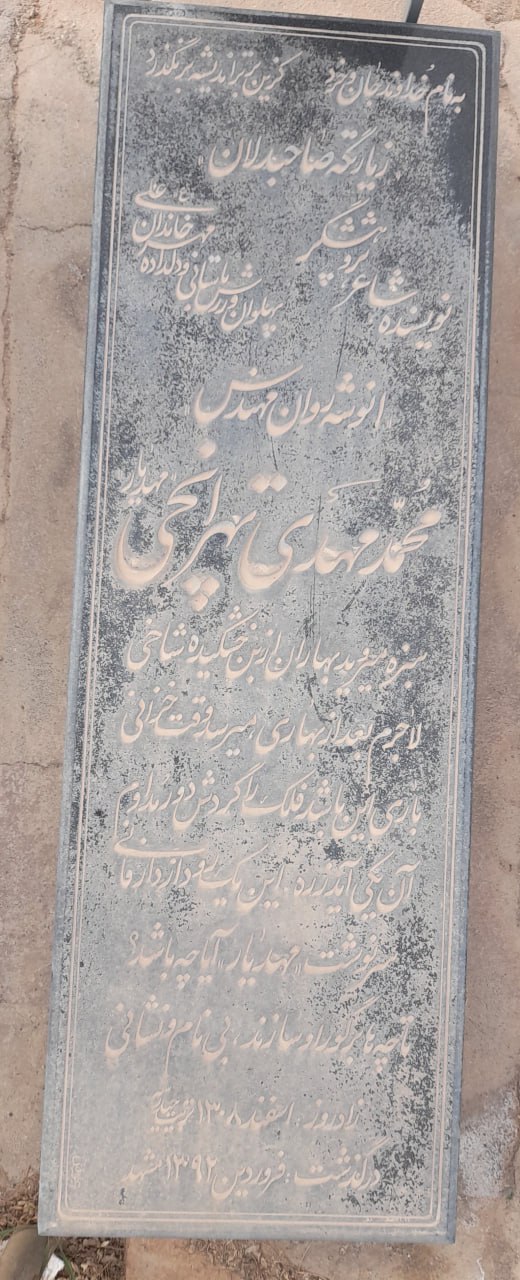 به نام خداوند جان و خرد کزین برتر اندیشه برنگذرد
زیارتگه صاحبدلان
نویسنده شاعر پژوهشگر
پهلوان ورزش باستانی و دلداده مهر خاندان علی ع
انوشه روان مهندس
محمّد مهدی تهرانچی مهدیار
سبزه میروید بهاران از بن خشکیده شاخی
لاجرم بعد از بهاری میرسد وقت خزانی
باری این باشد فلک را گردش دور مداوم
آن یکی آید ز ره، این یک رود از دار فانی
سرنوشت "مهدیار" آیا چه باشد؟
تا چه ها بر گور او سازند، بی نام و نشانی
زادروز: اسفند ۱۳۰۸
درگذشت: فروردین ۱۳۹۲ مشهد